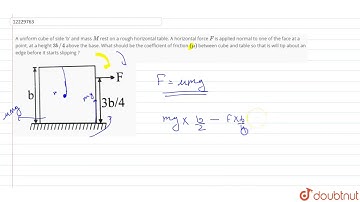 12229763
A uniform cube of side 'b' and mass M rest on a rough horizontal table. A horizontal force F is applied normal to one of the face at a point, at a height 3b / 4 above the base. What should be the coefficient of friction (μ) between cube and table so that is will tip about an edge before it starts slipping ?
F
b
3b/4
mg
μmg
F = μmg
mg × b/2 - F × b/
doubtnut